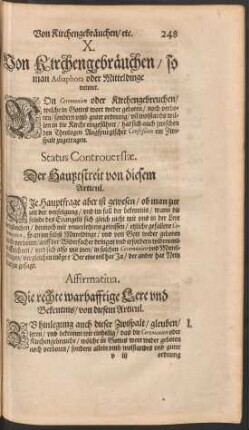 Von Kirchengebräuchen/ etc. 248
X.
Von Kirchengebräuchen/ so
man Adiaphora oder Mitteldinge
nennet.
VOn Ceremonien oder Kirchengebreuchen/
welche in Gottes wort weder geboten/ noch verbo-
ten/ sondern vmb guter ordnung/ vñ wolstands wil-
len in die Kirche eingeführet/ hat sich auch zwischen
den Theologen Augspurgischer Confession ein Zwi-
spalt zugetragen.
Status Controuersiæ.
Der Hauptstreit von diesem
Articul.
DIe Hauptfrage aber ist gewesen/ ob man zur
zeit der verfolgung/ vnd im fall der bekentnis/ wann die
feinde des Euangelij sich gleich nicht mit vns in der Lere
vergleichen/ dennoch mit vnuerletztem gewissen/ etzliche gefallene Ce-
remonien/ so an jm selbst Mitteldinge/ vnd von Gott weder geboten
noch verboten/ auff der Widersacher dringen vnd erfordern widerumb
auffrichten/ vnd sich also mit jnen/ in solchen Ceremonien vnd Mittel-
dingen/ vergleichen möge? Der eine teil hat Ja/ der ander hat Nein
dazu gesagt.
Affirmatiua.
Die rechte warhafftige Lere vnd
Bekentnis/ von diesem Articul.
ZV hinlegung auch dieser Zwispalt/ gleuben/ 1.
leren/ vnd bekennen wir einhellig/ das die Ceremonien oder
Kirchengebreuch/ welche in Gottes wort weder geboten
noch verboten/ sondern allein vmb wolstandes vnd guter
v iij ordnung